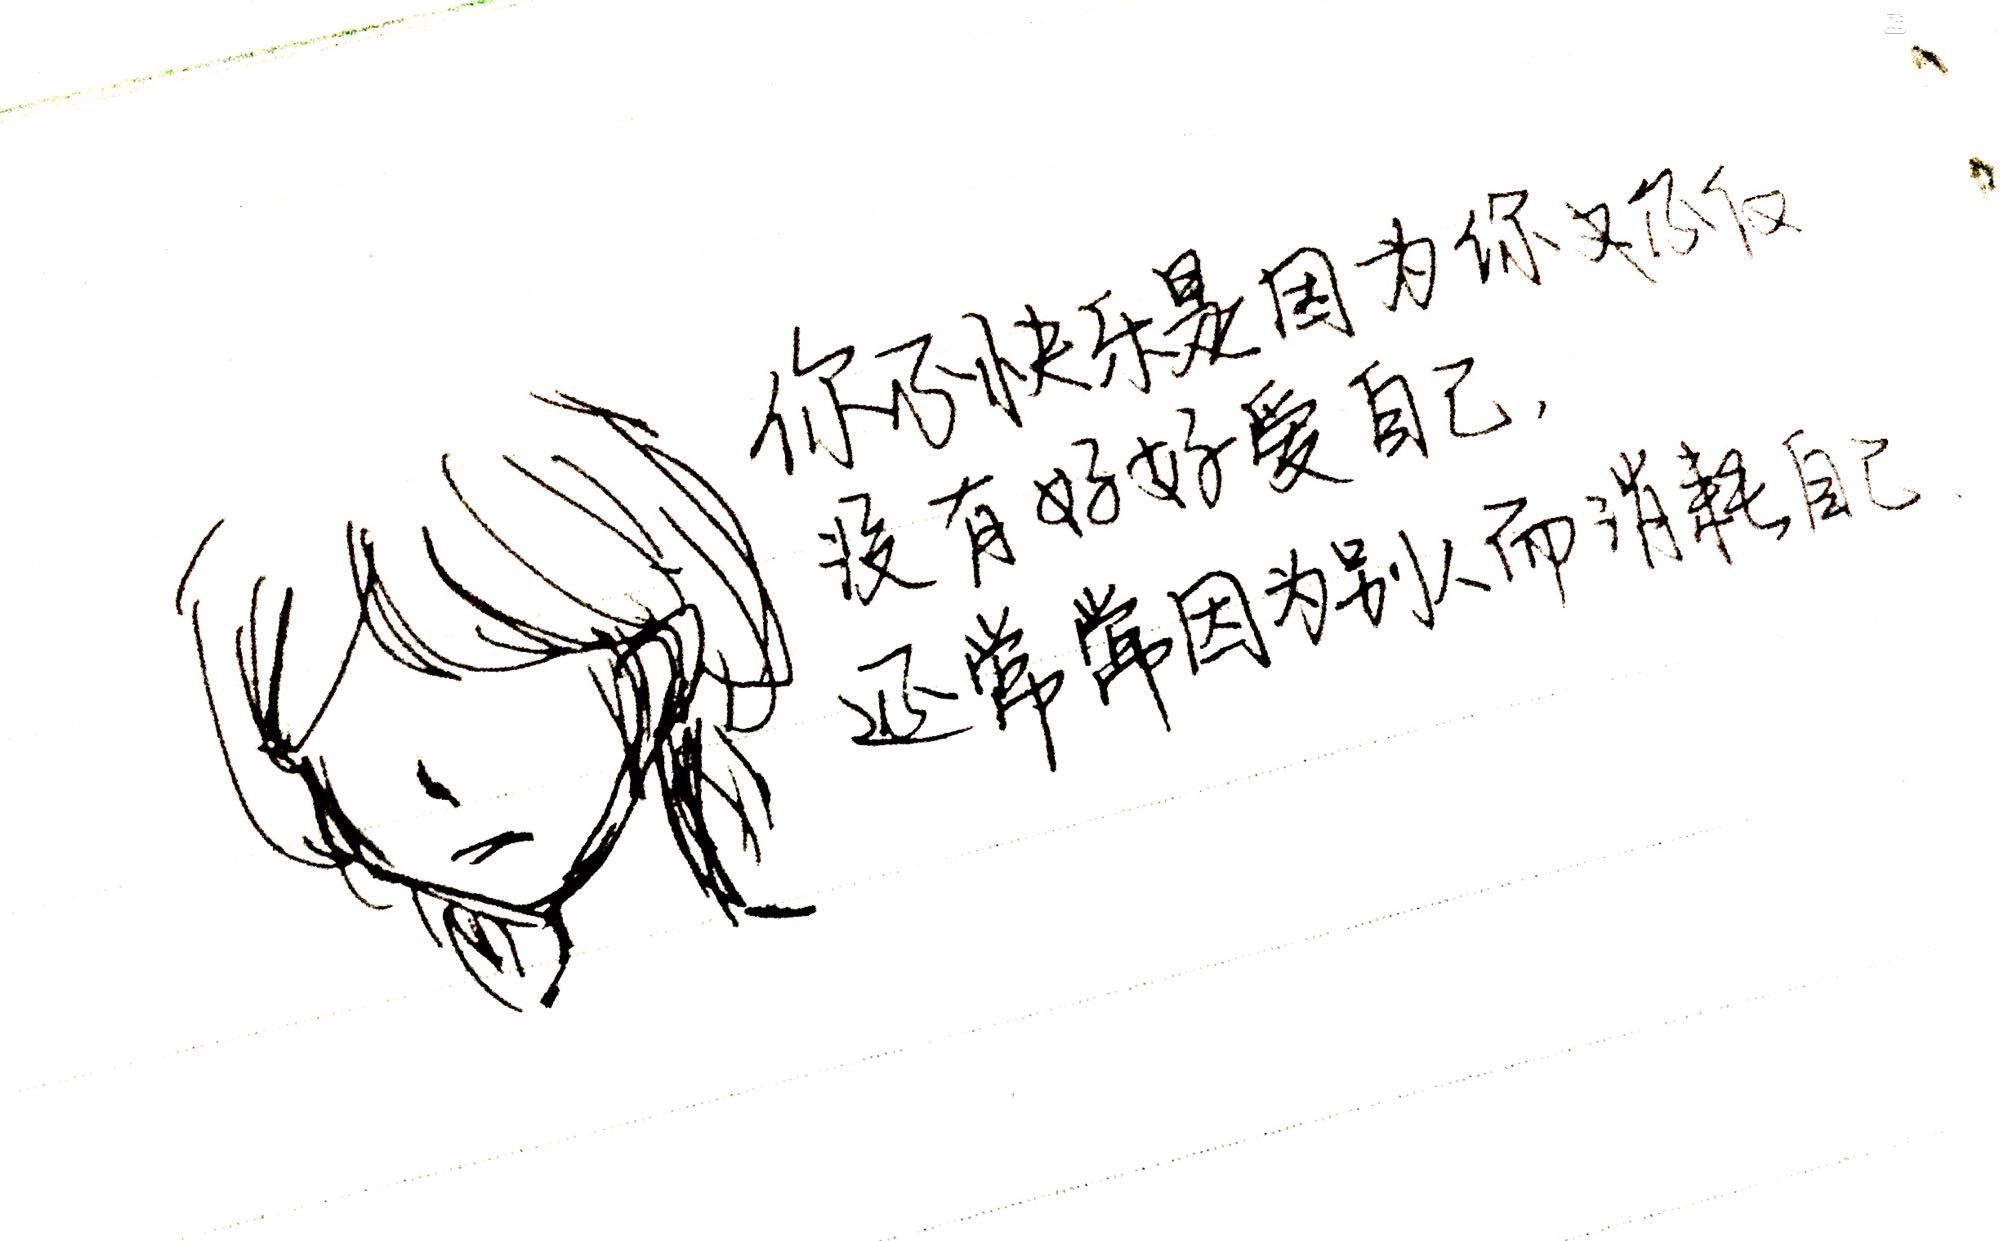 你不快乐是因为你又不仅
没有好好爱自己,
还常常因为别人而消耗自己.